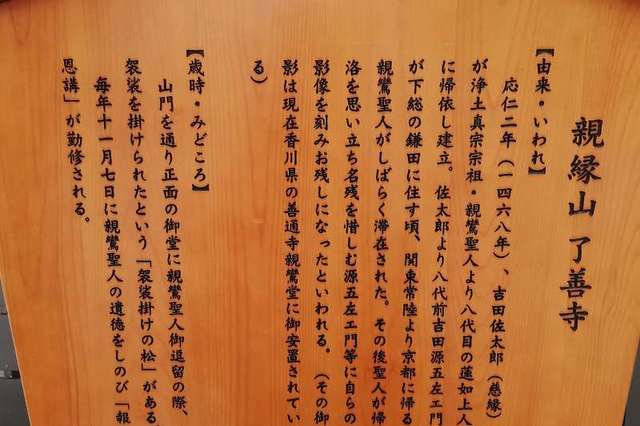 親縁山 了善寺
【由来・いわれ】
応仁二年(一四六八年)、吉田佐太郎(慈縁)
が浄土真宗宗祖・親鸞聖人より八代目の蓮如上人
に帰依し建立。佐太郎より八代前吉田源五左エ門
が下総の鎌田に住す頃、関東常陸より京都に帰る
親鸞聖人がしばらく滞在された。その後聖人が帰
洛を思い立ち名残を惜しむ源五左エ門等に自らの
影像を刻みお残しになったといわれる。(その御
影は現在香川県の善通寺親鸞堂に御安置されてい
る)
【歳時・みどころ】
山門を通り正面の御堂に親鸞聖人御逗留の際、
袈裟を掛けられたという「袈裟掛けの松」がある。
毎年十一月七日に親鸞聖人の遺徳をしのび「報
恩講」が勤修される。